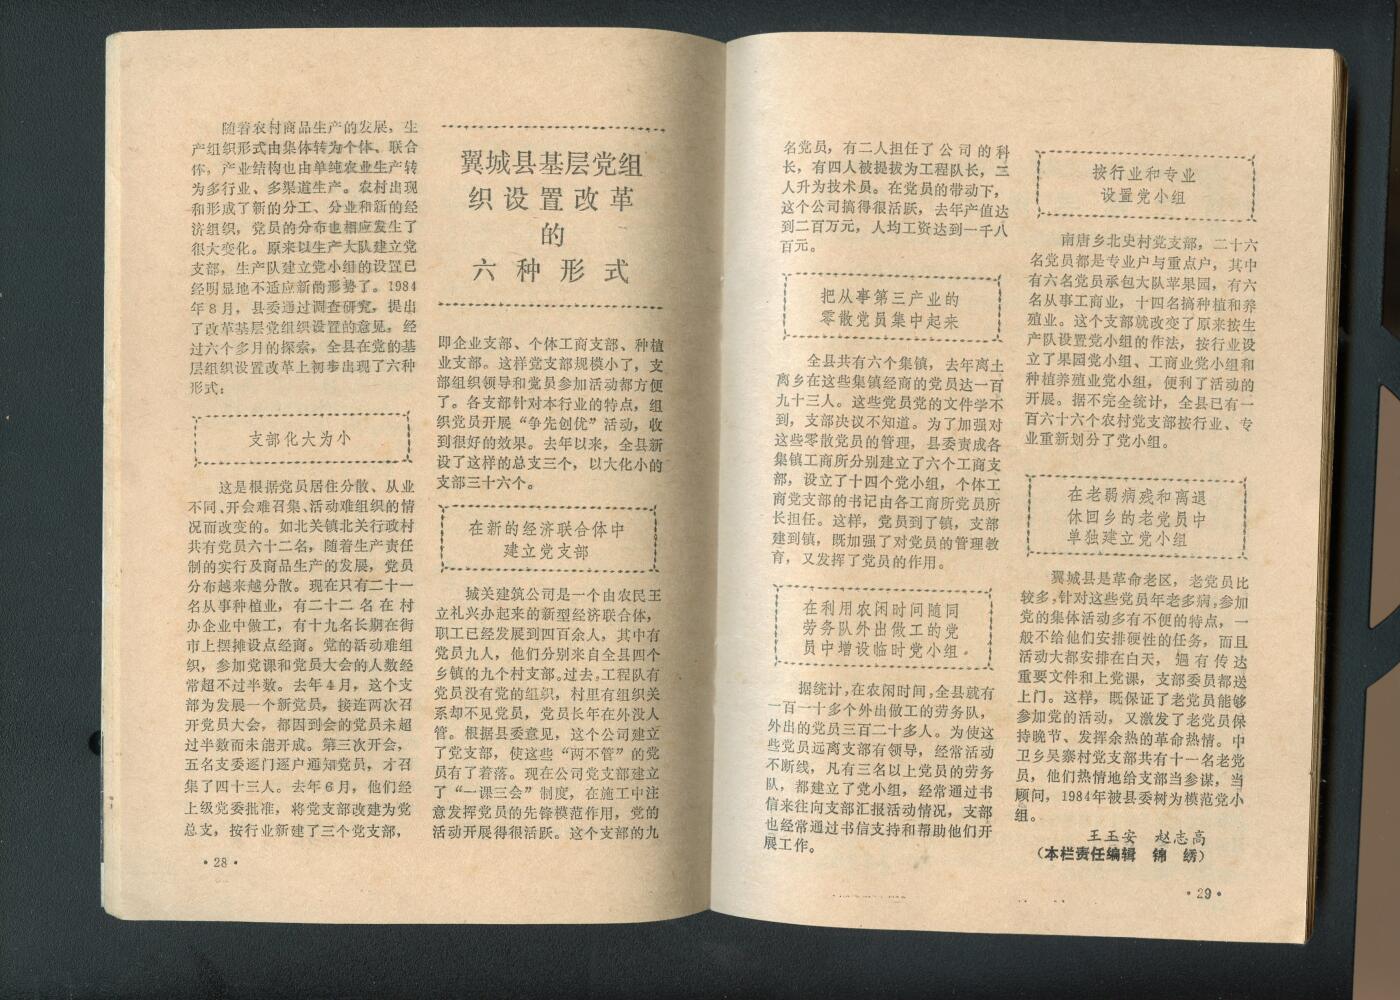 随着农村商品生产的发展，生
产组织形式由集体转为个体、联合
体，产业结构也由单纯农业生产转
为多行业、多渠道生产。农村出现
和形成了新的分工、分业和新的经
济组织，党员的分布也相应发生了
很大变化。原来以生产大队建立党
支部，生产队建立党小组的设置已
经明显地不适应新的形势了。1984
年8月，县委通过调查研究，提出
了改革基层党组织设置的意见。经
过六个多月的探索，全县在党的基
层组织设置改革上初步出现了六种
形式：
支部化大为小
这是根据党员居住分散、从业
不同、开会难召集、活动难组织的情
况而改变的。如北关镇北关行政村
共有党员六十二名，随着生产责任
制的实行及商品生产的发展，党员
分布越来越分散。现在只有二十一
名从事种植业，有二十二名在村
办企业中做工，有十九名长期在街
市上摆摊设点经商。党的活动难组
织，参加党课和党员大会的人数经
常超不过半数。去年4月，这个支
部为发展一个新党员，接连两次召
开党员大会，都因到会的党员未超
过半数而未能开成。第三次开会，
五名支委逐门逐户通知党员，才召
集了四十三人。去年6月，他们经
上级党委批准，将党支部改建为党
总支，按行业新建了三个党支部，
·28·
翼城县基层党组
织设置改革
的
六种形式
即企业支部、个体工商支部、种植
业支部。这样党支部规模小了，支
部组织领导和党员参加活动都方便
了。各支部针对本行业的特点，组
织党员开展“争先创优”活动，收
到很好的效果。去年以来，全县新
设了这样的总支三个，以大化小的
支部三十六个。
在新的经济联合体中
建立党支部
城关建筑公司是一个由农民王
立礼兴办起来的新型经济联合体，
职工已经发展到四百余人，其中有
党员九人，他们分别来自全县四个
乡镇的九个村支部。过去，工程队有
党员没有党的组织，村里有组织关
系却不见党员，党员长年在外没人
管。根据县委意见，这个公司建立
了党支部，使这些“两不管”的党
员有了着落。现在公司党支部建立
了“一课三会”制度，在施工中注
意发挥党员的先锋模范作用，党的
活动开展得很活跃。这个支部的九
名党员，有二人担任了公司的科
长，有四人被提拔为工程队长，三
人升为技术员。在党员的带动下，
这个公司搞得很活跃，去年产值达
到二百万元，人均工资达到一千八
百元。
把从事第三产业的
零散党员集中起来
全县共有六个集镇，去年离土
离乡在这些集镇经商的党员达一百
九十三人。这些党员党的文件学不
到，支部决议不知道。为了加强对
这些零散党员的管理，县委责成各
集镇工商所分别建立了六个工商支
部，设立了十四个党小组，个体工
商党支部的书记由各工商所党员所
长担任。这样，党员到了镇，支部
建到镇，既加强了对党员的管理教
育，又发挥了党员的作用。
在利用农闲时间随同
劳务队外出做工的党
员中增设临时党小组。
据统计，在农闲时间，全县就有
一百一十多个外出做工的劳务队，
外出的党员三百二十多人。为使这
些党员远离支部有领导，经常活动
不断线，凡有三名以上党员的劳务
队，都建立了党小组，经常通过书
信来往向支部汇报活动情况，支部
也经常通过书信支持和帮助他们开
展工作。
按行业和专业
设置党小组
南唐乡北史村党支部，二十六
名党员都是专业户与重点户，其中
有六名党员承包大队苹果园，有六
名从事工商业，十四名搞种植和养
殖业。这个支部就改变了原来按生
产队设置党小组的作法，按行业设
立了果园党小组、工商业党小组和
种植养殖业党小组，便利了活动的
开展。据不完全统计，全县已有一
百六十六个农村党支部按行业、专
业重新划分了党小组。
在老弱病残和离退
休回乡的老党员中
单独建立党小组
翼城县是革命老区，老党员比
较多，针对这些党员年老多病，参加
党的集体活动多有不便的特点，一
般不给他们安排硬性的任务，而且
活动大都安排在白天，遇有传达
重要文件和上党课，支部委员都送
上门。这样，既保证了老党员能够
参加党的活动，又激发了老党员保
持晚节、发挥余热的革命热情。中
卫乡吴寨村党支部共有十一名老党
员，他们热情地给支部当参谋，当
顾问，1984年被县委树为模范党小
组。
王玉安　赵志高
（本栏责任编辑　锦　绣）
·29·